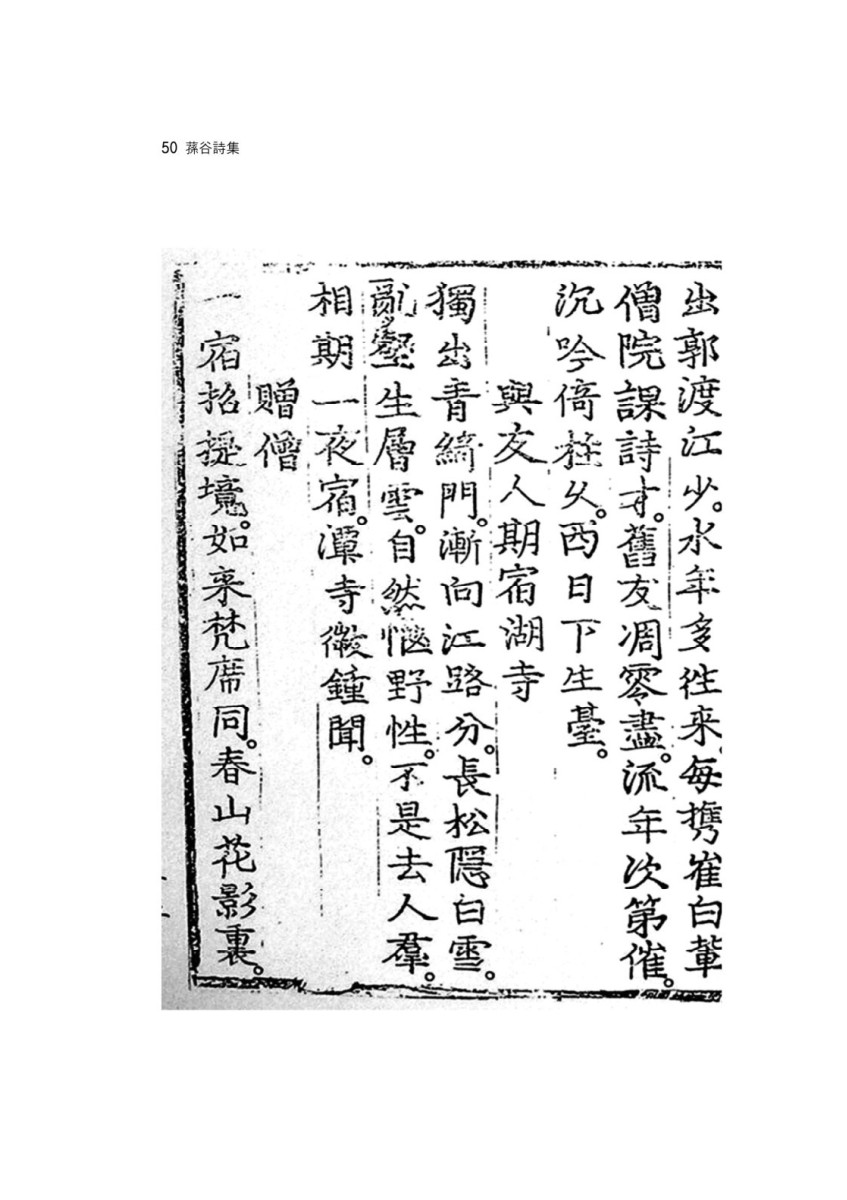 50 蓀谷詩集
出郭渡江少。水年多往来。每携崔白輩
僧院課詩才。舊友凋零盡。流年次第催。
沉吟倚柱久。西日下生臺。
與友人期宿湖寺
獨出青綺門。漸向江路分。長松隱白雪。
亂壑生層雲。自然愜野性。不是去人羣。
相期一夜宿。潭寺微鍾聞。
贈僧
一宿招提境。如来梵席同。春山花影裏。